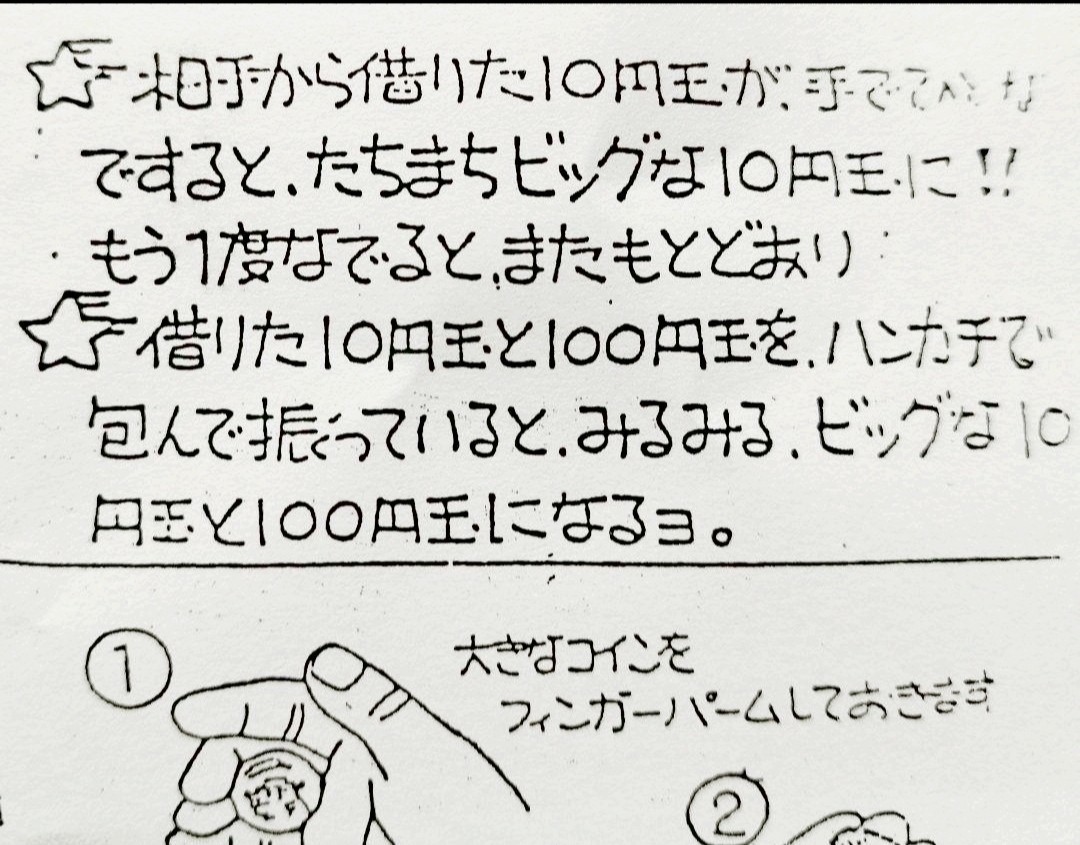 相手から借りた10円玉が、手で な
ですると、たちまちビッグな10円玉に!!
もう1度なでると、またもとどおり
借りた10円玉と100円玉を、ハンカチで
包んで振っていると、みるみる、ビッグな10
円玉と100円玉になるヨ。
1
大きなコインを
フィンガーパームしておきます
2